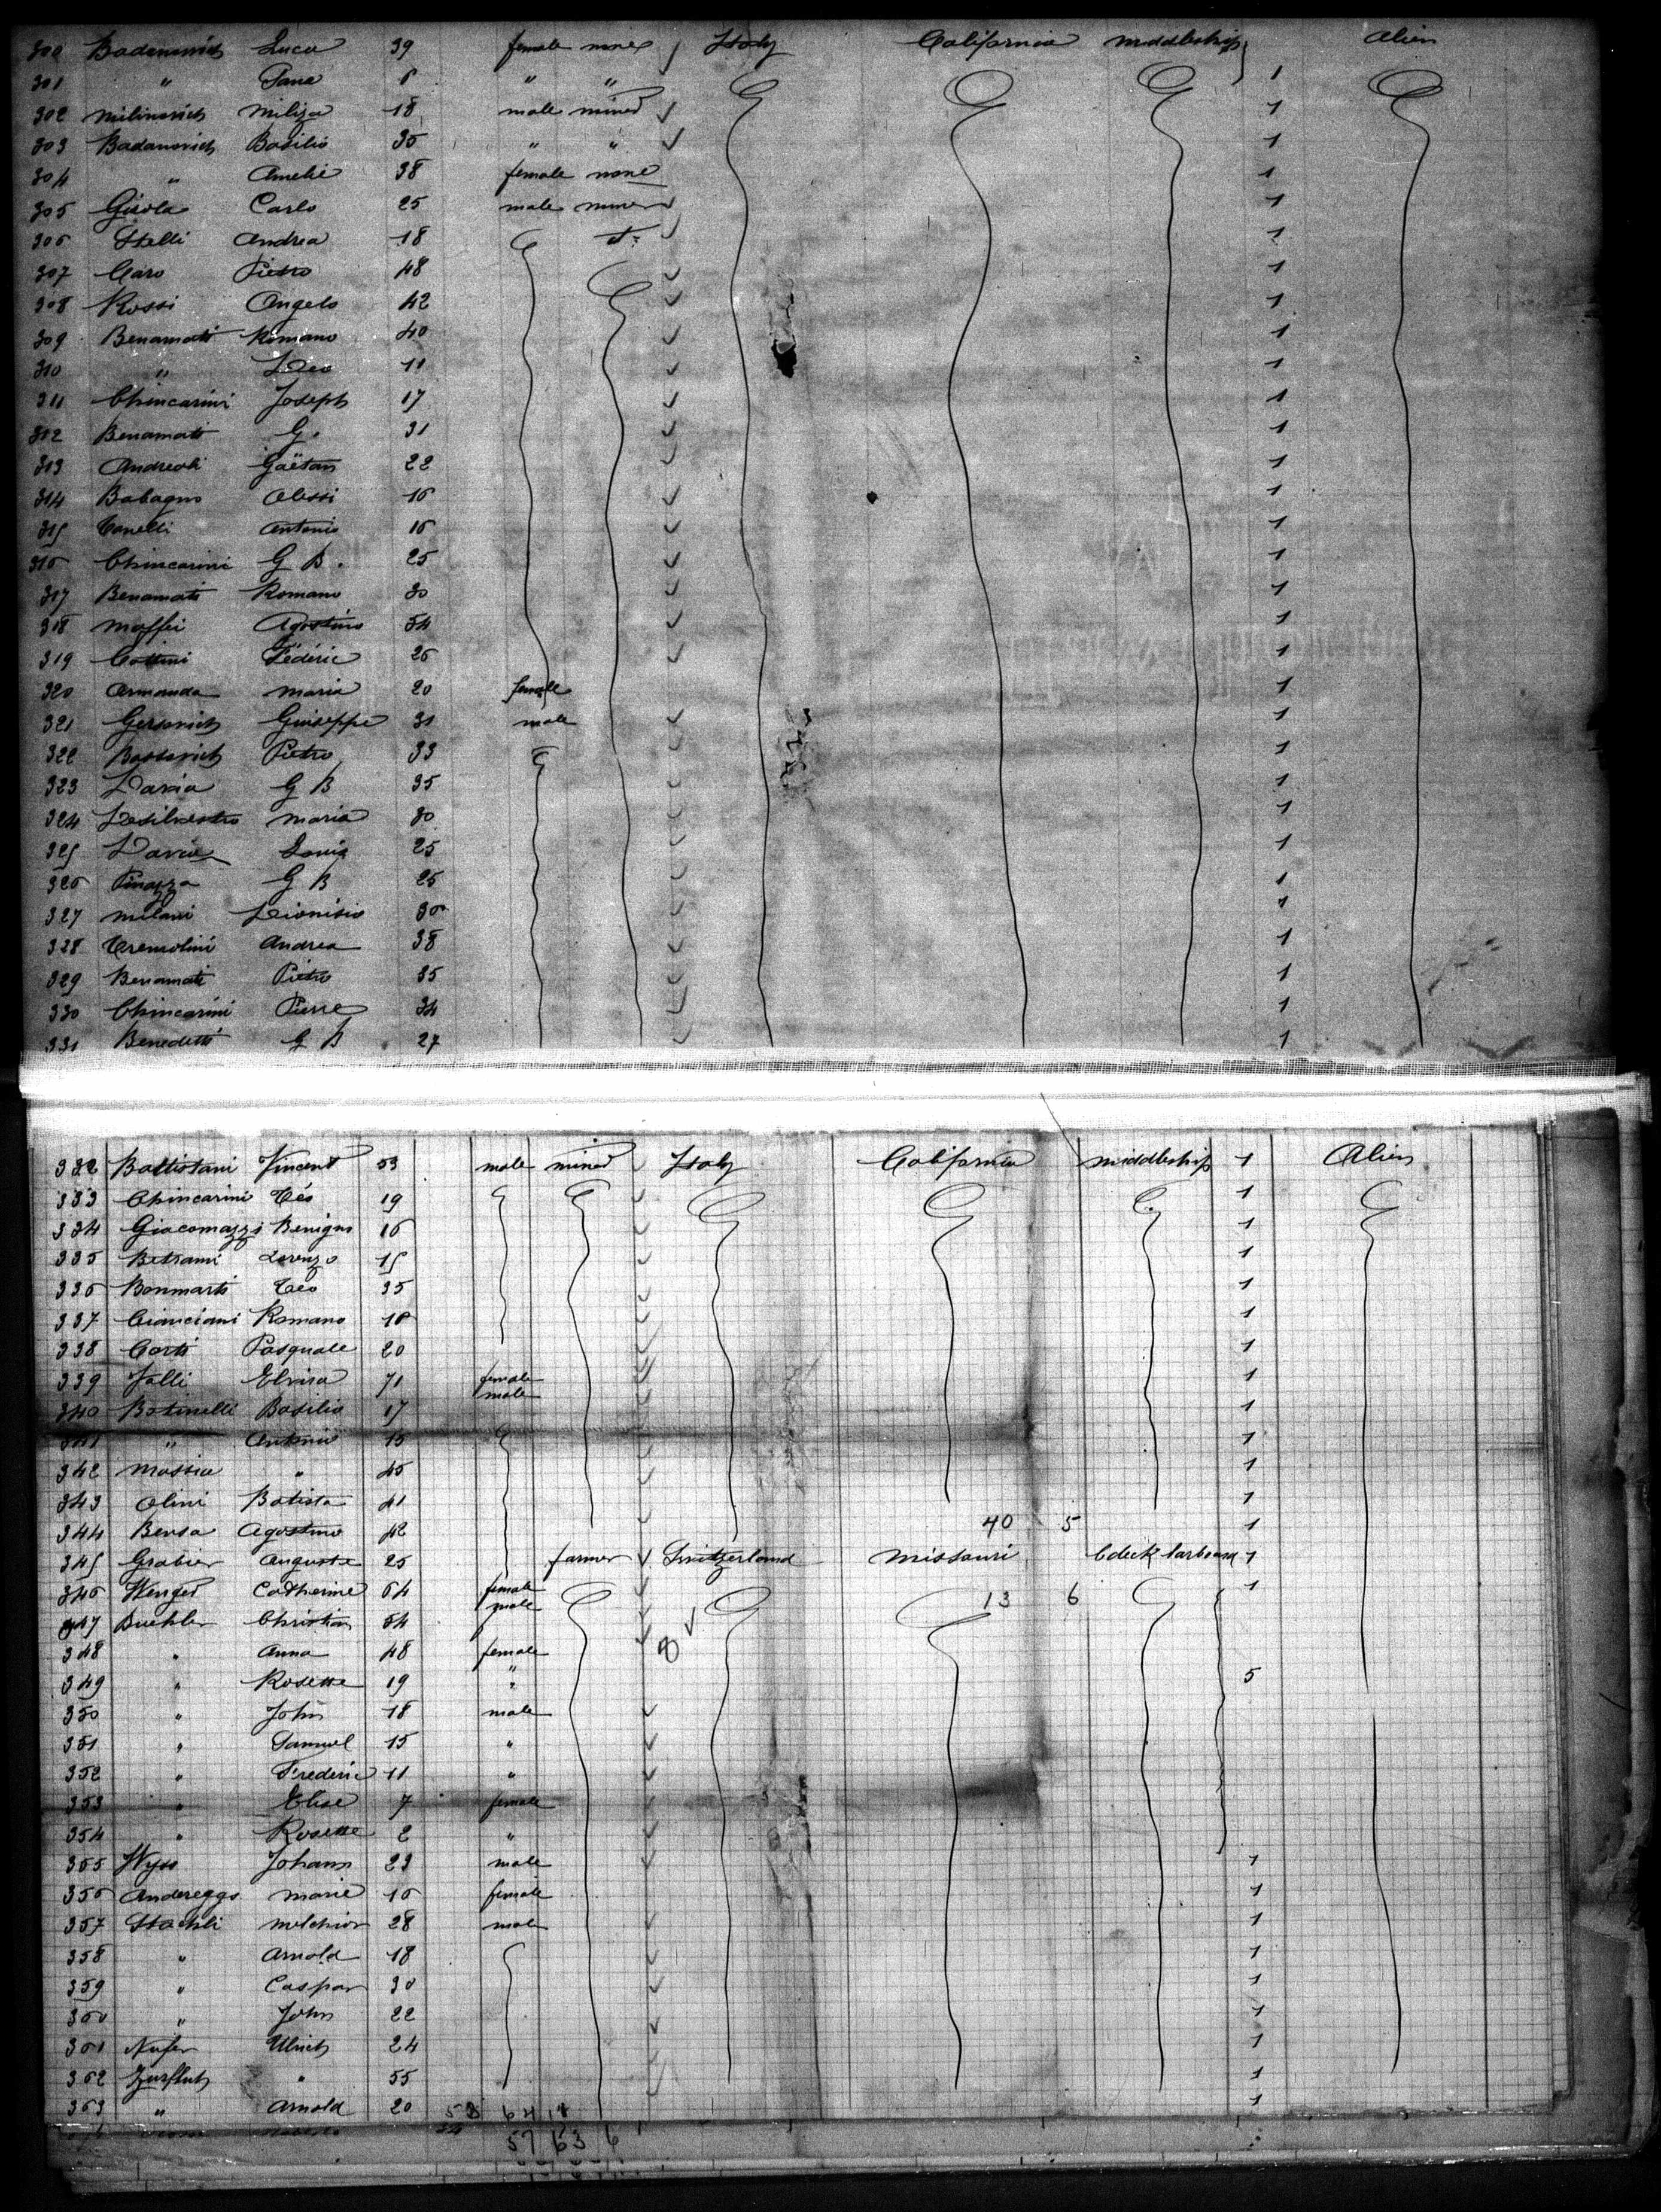 300 Badanovich Luca 39 female none Italy California middleship Alien
301 " Jane 6 " " 1
302 Milinovich Miliza 18 male miner 1
303 Badanovich Basilio 35 " " 1
304 " Amelie 38 female none 1
305 Girola Carlo 25 male miner 1
306 Stelli Andrea 18 1
307 Caro Pietro 48 1
308 Rossi Angelo 42 1
309 Benamati Romano 40 1
310 " Leo 11 1
311 Chincarini Joseph 17 1
312 Benamati G. 31 1
313 Andreoli Gaëtan 22 1
314 Babagno Alessi 16 1
315 Canelli Antonio 16 1
316 Chincarini G B. 25 1
317 Benamati Romano 30 1
318 Maffei Agostino 54 1
319 Cottini Fédéric 26 1
320 Armanda Maria 20 female 1
321 Gersovich Guiseppe 31 male 1
322 Bossovich Pietro 33 1
323 Davia G B 35 1
324 Desilvestro Maria 30 1
325 Davia Louis 25 1
326 Pinazza G B 25 1
327 Milani Dionisio 36 1
328 Cremolini Andrea 38 1
329 Benamati Pietro 35 1
330 Chincarini Pierre 34 1
331 Benedetti G B 27 1
332 Battistani Vincent 53 male miner Italy California middleship 1 Alien
333 Chincarini Téo 19 1
334 Giacomazzi Benigno 16 1
335 Betrami Lorenzo 15 1
336 Bonmarti Téo 35 1
337 Cianciani Romano 18 1
338 Corti Pasquale 20 1
339 Jalli Elvira 71 female 1
340 Botinelli Basilio 17 male 1
341 " Antonio 15 1
342 Massia " 45 1
343 Olini Batista 41 1
344 Bersa Agostino 42 40 5 1
345 Grabier Auguste 25 farmer Switzerland Missouri Cdeck larboard 1
346 Wenger Catherine 64 female 13 6 1
347 Buehler Christian 54 male
348 " Anna 48 female 8
349 " Rosette 19 " 5
350 " John 18 male
351 " Samuel 15 "
352 " Frederic 11 "
353 " Elise 7 female
354 " Rosette 2 "
355 Wyss Johann 23 male 1
356 Andereggs Marie 16 female 1
357 Staehli Melchior 28 male 1
358 " Arnold 18 1
359 " Caspar 30 1
360 " John 22 1
361 Nufer Ulrich 24 1
362 Zurfluh " 55 1
363 " Arnold 20 1
57 63 6